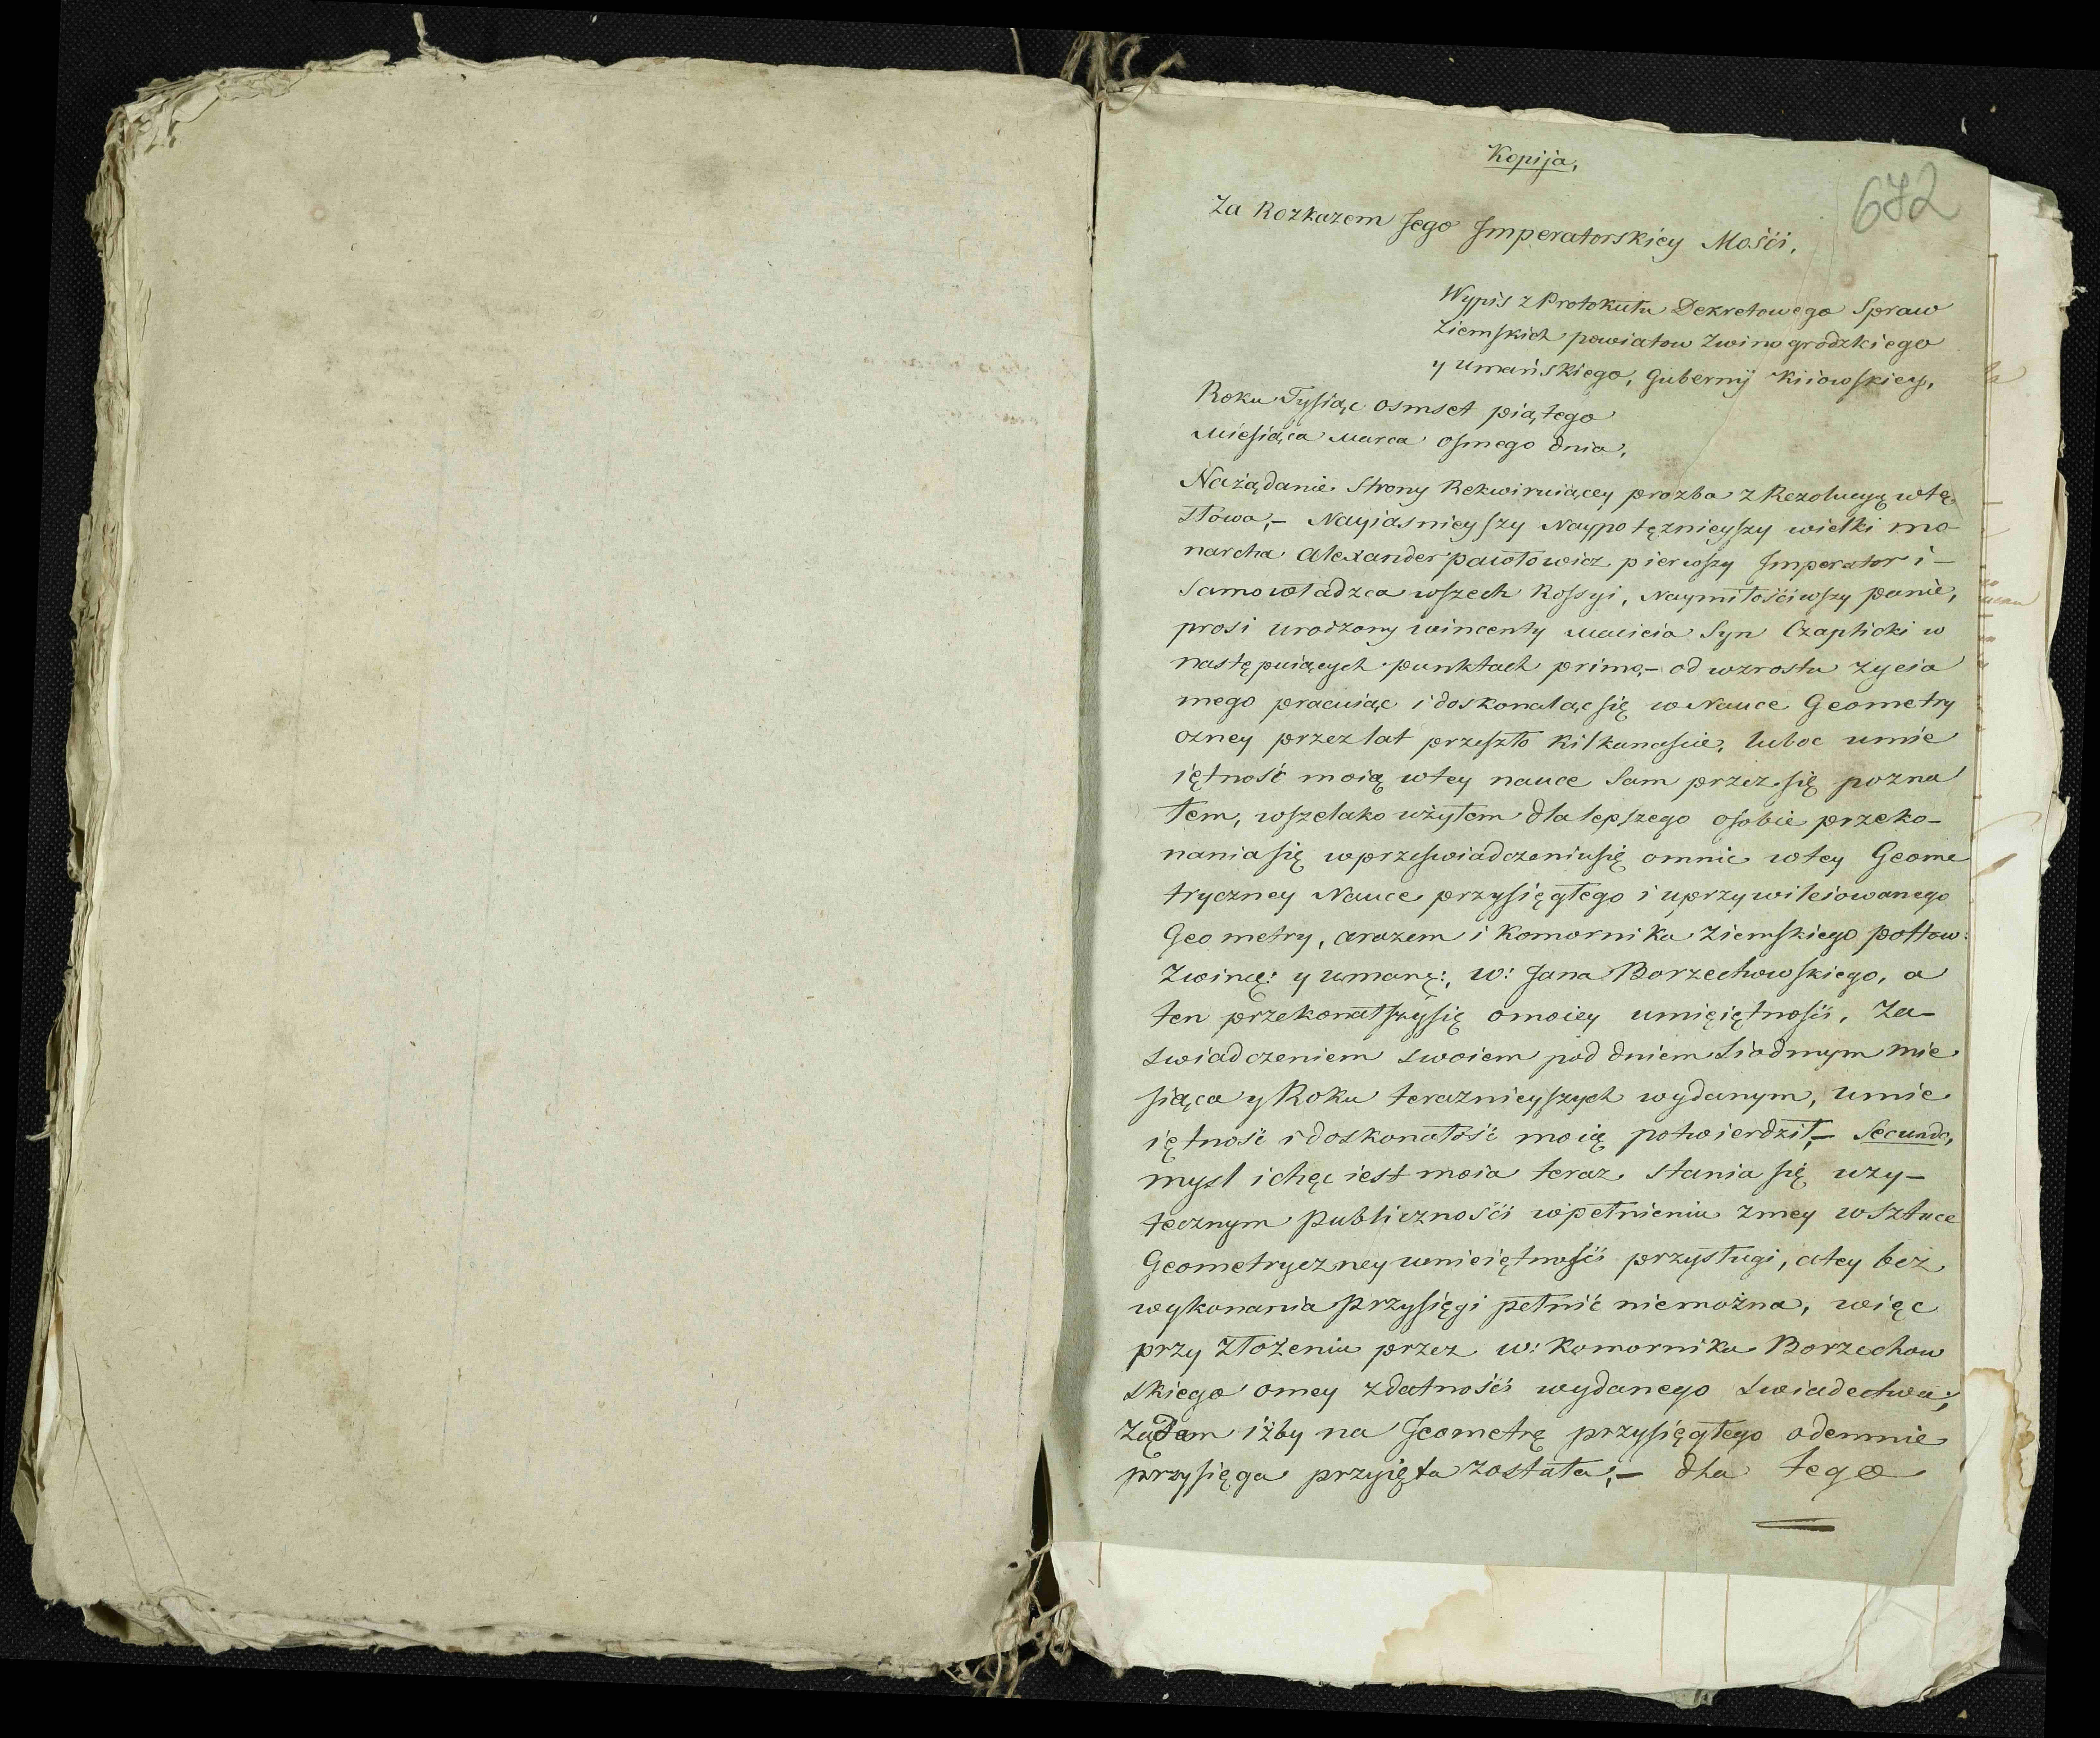 Kopija,
672
Za Rozkazem Jego Imperatorskiey Mości,
Wypis z Protokułu Dekretowego Spraw
Ziemskich powiatow Zwinogrodzkiego
y Umańskiego, Gubernij Kiiowskiey,
Roku Tysiąc osmset piątego
Miesiąca Marca osmego dnia,
Na żądanie Strony Rekwiruiącey prozba z Rezolucyą w te
słowa,- Nayiasnieyszy Naypotęznieyszy wielki mo-
narcha Alexander pawłowicz pierwszy Imperator i-
Samowładzca wszech Rossyi, Naymiłościwszy panie,
prosi urodzony wincenty Macieia Syn Czaplicki w
następuiących punktach primo,- od wzrostu zycia
mego pracuiąc i doskonaląc się w Nauce Geometry
czney przez lat przeszło kilkanascie, luboc umie
iętność moią w tey nauce Sam przez się pozna
łem, wszelako użyłem dla lepszego o sobie przeko-
nania się w przeswiadczeniu się o mnie w tey Geome
tryczney Nauce przysięgłego i uprzywileiowanego
Geometry, a razem i Komornika Ziemskiego pottow:
Zwing: y umang:, w: Jana Borzechowskiego, a
ten przekonałszy się o moiey umięiętności, Za-
swiadczeniem swoiem pod dniem siodmym mie
siąca y Roku teraznieyszych wydanym, umie
iętność i doskonałość moią potwierdził,- Secundo,
mysl i chęc iest moia teraz stania się uzy-
tecznym publiczności w pełnieniu z mey w sztuce
Geometryczney umieiętności przysługi, a tey bez
wykonania przysięgi pełnić niemożna, więc
przy złożeniu przez w: Komornika Borzechow
skiego o mey zdatności wydanego swiadectwa,
żądam iżby na Jeometrę przysięgłego odemnie
przysięga przyięta została,- dla tego